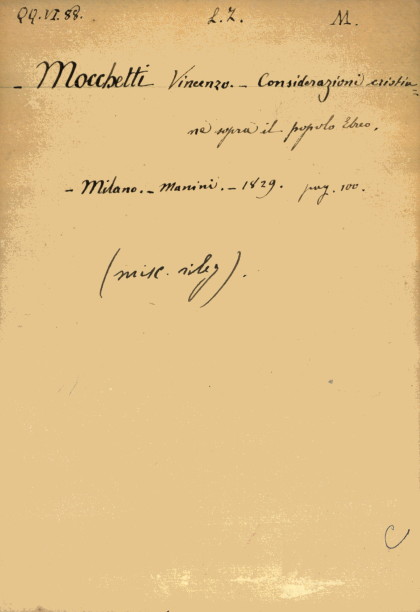 QQ.VI.88. L.Z. M.
- Mocchetti Vincenzo. - Considerazioni cristia=
ne sopra il popolo Ebreo.
- Milano. - Manini. - 1829. pag. 100.
(misc. rileg).
C